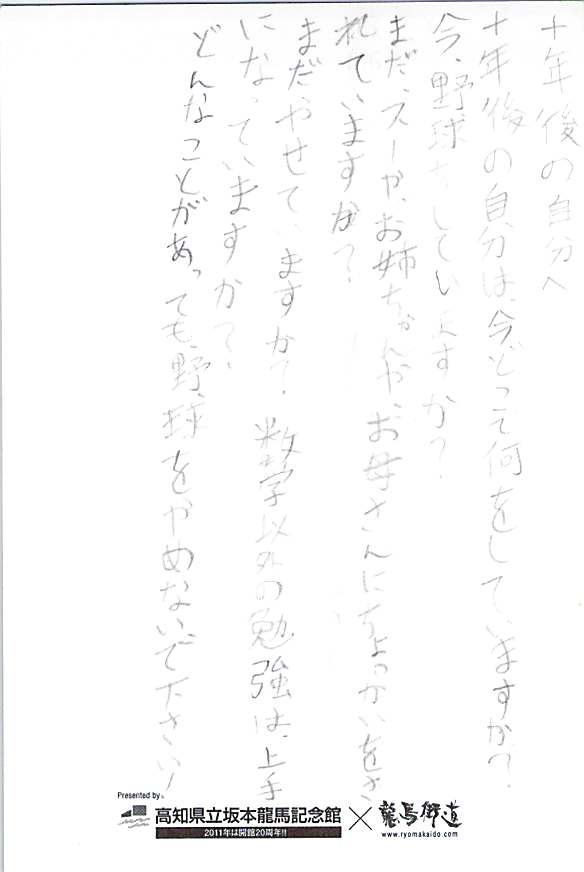 十年後の自分へ
十年後の自分は、今どこで何をしていますか?
今、野球をしていますか?
まだ、スーや、お姉ちゃんや、お母さんにちょっかいをさ
れていますか?
まだやせていますか? 数学以外の勉強は、上手
になっていますか?
どんなことがあっても、野球をやめないで下さい!
Presented by
高知県立坂本龍馬記念館×龍馬街道
2011年は開館20周年!!
www.ryomakaido.com